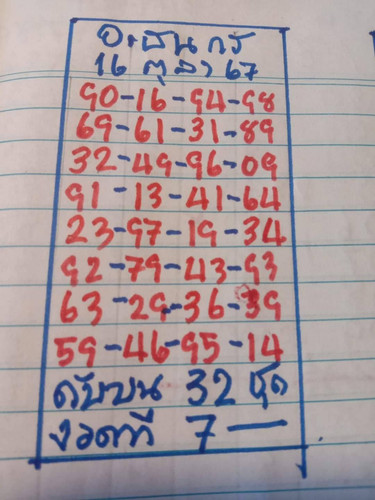 อ.ธนกร
16 ตุลา 67
90-16-94-98
69-61-31-89
32-49-96-09
91-13-41-64
23-97-19-34
92-79-43-93
63-29-36-39
59-46-95-14
ดับบน 32 ชุด
งวดที่ 7